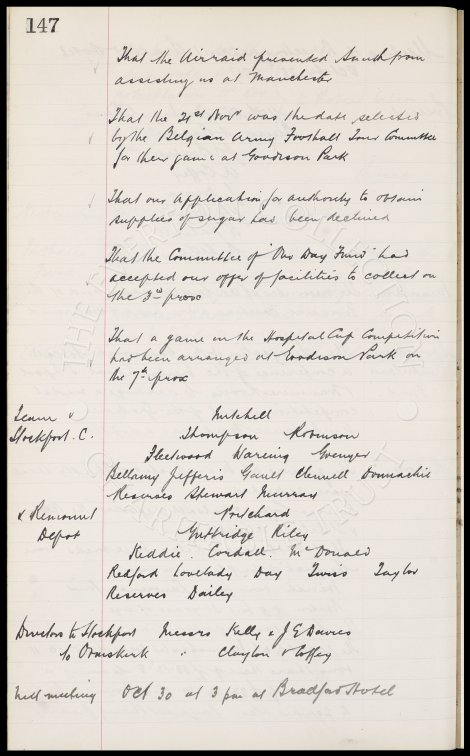 147
That the Airraid presented Smith from
assisting us at Manchester
That the 21st Novr was the date selected
by the Belgian Army Football Tour Committee
for their game at Goodison Park
That our application for authority to obtain
supplies of sugar has been declined
That the Committee of "Our Day Fund" had
accepted our offer of facilities to collect on
the 3rd prox
That a game in the Hospital Cup Competition
had been arranged at Goodison Park on
the 7th prox
Team v Mitchell
Stockport. C. Thompson Robinson
Fleetwood Wareing Grenyer
Bellamy Jefferis Gault Clennell Donnachie
Reserves Stewart Murray
v Remount Pritchard
Depot Guttridge Riley
Keddie. Cordall. McDonald
Redford Lovelady Day Twiss Taylor
Reserves Dailey
Directors to Stockport Messrs Kelly & J E Davies
to Ormskirk " Clayton & Coffey
Next meeting Oct 30 at 3 pm at Bradford Hotel